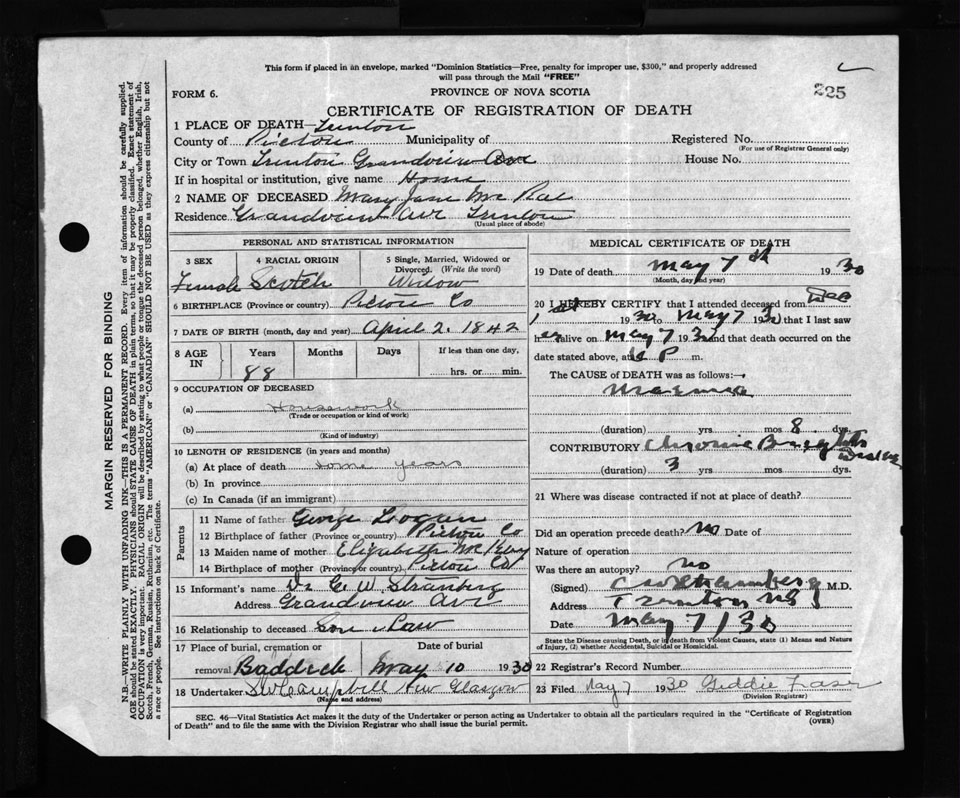 This form if placed in an envelope, marked "Dominion Statistics—Free, penalty for improper use, $300," and properly addressed
will pass through the Mail "FREE"
FORM 6.
PROVINCE OF NOVA SCOTIA
225
CERTIFICATE OF REGISTRATION OF DEATH
1 PLACE OF DEATH—Trenton
County of Pictou Municipality of Registered No.
(For use of Registrar General only)
City or Town Trenton Grandview Ave House No.
If in hospital or institution, give name Home
2 NAME OF DECEASED Mary Jane McRae
Residence Grandview Ave Trenton
(Usual place of abode)
PERSONAL AND STATISTICAL INFORMATION
3 SEX 4 RACIAL ORIGIN 5 Single, Married, Widowed or
Divorced. (Write the word)
Female Scotch Widow
6 BIRTHPLACE (Province or country) Pictou Co
7 DATE OF BIRTH (month, day and year) April 2. 1842
8 AGE IN Years Months Days If less than one day,
88 hrs. or min.
9 OCCUPATION OF DECEASED
(a) Housework
(Trade or occupation or kind of work)
(b)
(Kind of industry)
10 LENGTH OF RESIDENCE (in years and months)
(a) At place of death some years
(b) In province
(c) In Canada (if an immigrant)
Parents
11 Name of father George Logan
12 Birthplace of father (Province or country) Pictou Co
13 Maiden name of mother Elizabeth McKay
14 Birthplace of mother (Province or country) Pictou Co
15 Informant's name Dr C. W. Stramberg
Address Grandview Ave
16 Relationship to deceased Son Law
17 Place of burial, cremation or Date of burial
removal Baddeck May 10 1930
18 Undertaker Campbell New Glasgow
(Name and address)
MEDICAL CERTIFICATE OF DEATH
19 Date of death May 7th 1930
(Month, day and year)
20 I HEREBY CERTIFY that I attended deceased from Dec
1st 19 to May 7 30 that I last saw
her alive on May 7 19 and that death occurred on the
date stated above, at P m.
The CAUSE of DEATH was as follows:—
Uraemia
(duration) yrs mos 8 dys.
CONTRIBUTORY Chronic Brights Disease
(duration) 3 yrs mos dys.
21 Where was disease contracted if not at place of death?
Did an operation precede death? No Date of
Nature of operation
Was there an autopsy? No
(Signed) C W Stramberg M.D.
Address Trenton NS
Date May 7/30
State the Disease causing Death, or in death from Violent Causes, state (1) Means and Nature
of Injury, (2) whether Accidental, Suicidal or Homicidal.
22 Registrar's Record Number
23 Filed May 7 1930 Fraser
(Division Registrar)
SEC. 46—Vital Statistics Act makes it the duty of the Undertaker or person acting as Undertaker to obtain all the particulars required in the "Certificate of Registration
of Death" and to file the same with the Division Registrar who shall issue the burial permit. (OVER)
MARGIN RESERVED FOR BINDING
N.B.—WRITE PLAINLY WITH UNFADING INK—THIS IS A PERMANENT RECORD. Every item of information should be carefully supplied.
AGE should be stated EXACTLY. PHYSICIANS should STATE CAUSE OF DEATH in plain terms, so that it may be properly classified. Exact statement of
OCCUPATION is very important. RACIAL ORIGIN will be described by stating to what people or tongue the deceased person belonged, whether English, Irish,
Scotch, French, German, Russian, Ruthenian, etc. The terms "AMERICAN" or "CANADIAN" SHOULD NOT BE USED as they express citizenship but not
a race or people. See instructions on back of Certificate.